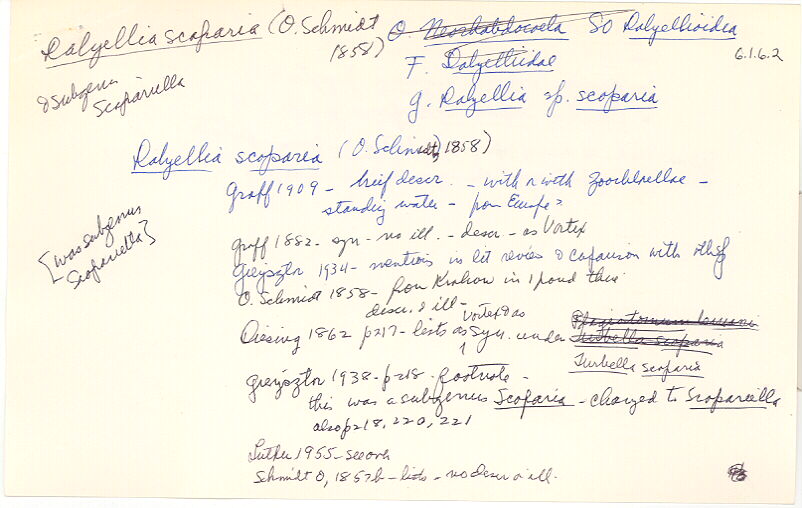 Dalyellia scoparia (O. Schmidt 1858)
O Neorhabdocoela So Dalyellioidea
6.1.6.2
F. Dalyelliidae
g. Dalyellia sp. scoparia
& subgenus Scoparella
Dalyellia scoparia (O. Schmidt, 1858)
Graff 1909 - brief descr. - with n with Zoochlorellae -
standing water - from Europe
[was subgenus Scoparella]
Graff 1882 - syn - no ill. - descr - as Vortex
Gieysztor 1934 - mentions in lit review & comparison with
O. Schmidt 1858 - from Krakow in 1 pond there
descr. & ill -
Diesing 1862 p217 - lists Vortex as syn. under Turbella scoparia
Turbella scoparia
Gieysztor 1938 - p218 - footnote -
this was a subgenus Scoparia - changed to Scoparella
also p218, 220, 221
Luther 1955 - see over
Schmidt O, 1857b - lists - no descr or ill.